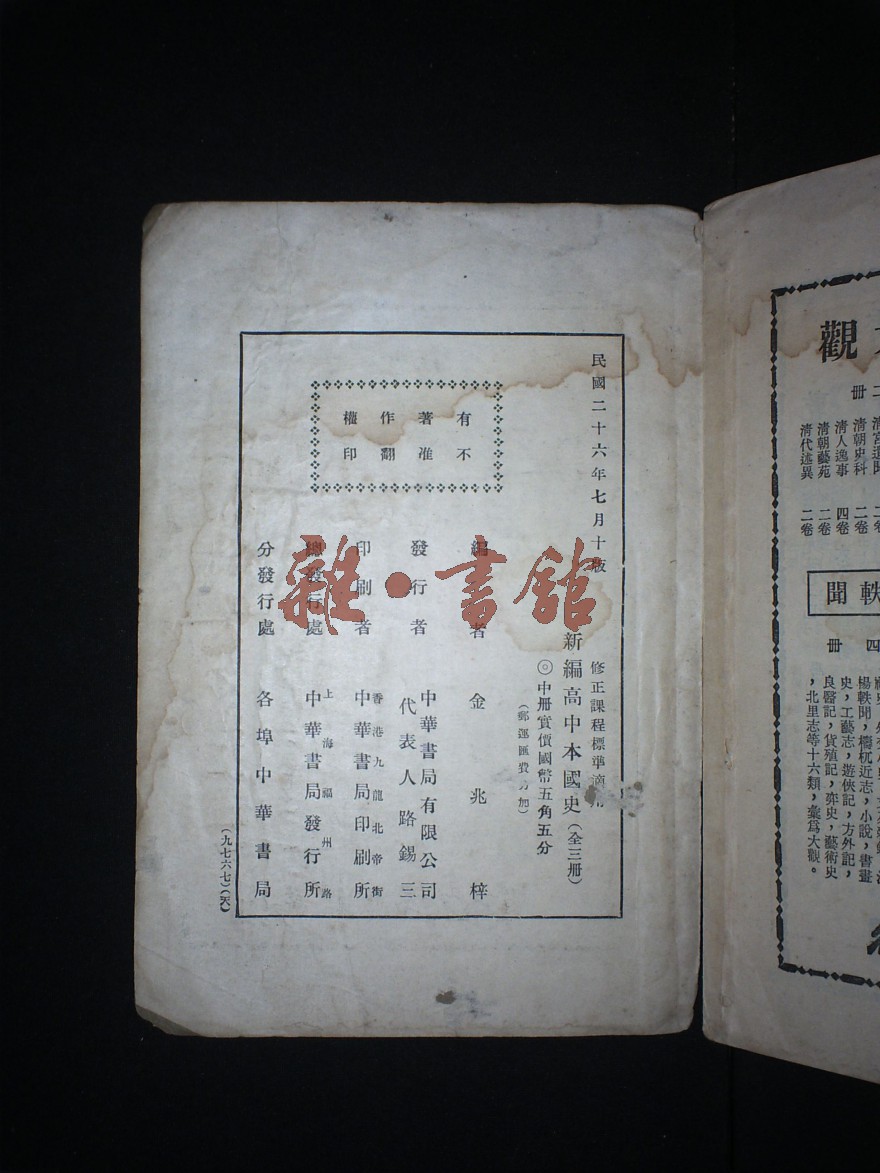 民國二十六年七月十版
修正課程標準適用
新編高中本國史(全三冊)
◎中冊實價國幣五角五分
(郵運匯費另加)
有著作權
不准翻印
編 者 金兆梓
發行者 中華書局有限公司
代表人路錫三
印刷者 香港九龍北帝街
中華書局印刷所
總發行處 上海福州路
中華書局發行所
分發行處 各埠中華書局
(九七六七)(天)
雜·書館
觀
二冊
清宮遺聞 二卷
清朝史料 二卷
清人逸事 四卷
清朝藝苑 二卷
清代述異 二卷
軼聞
四冊
楊軼聞,檮杌近志,小說,書畫
史,工藝志,遊俠記,方外記,
良醫記,貨殖記,弈史,藝術史
,北里志等十六類,彙爲大觀。